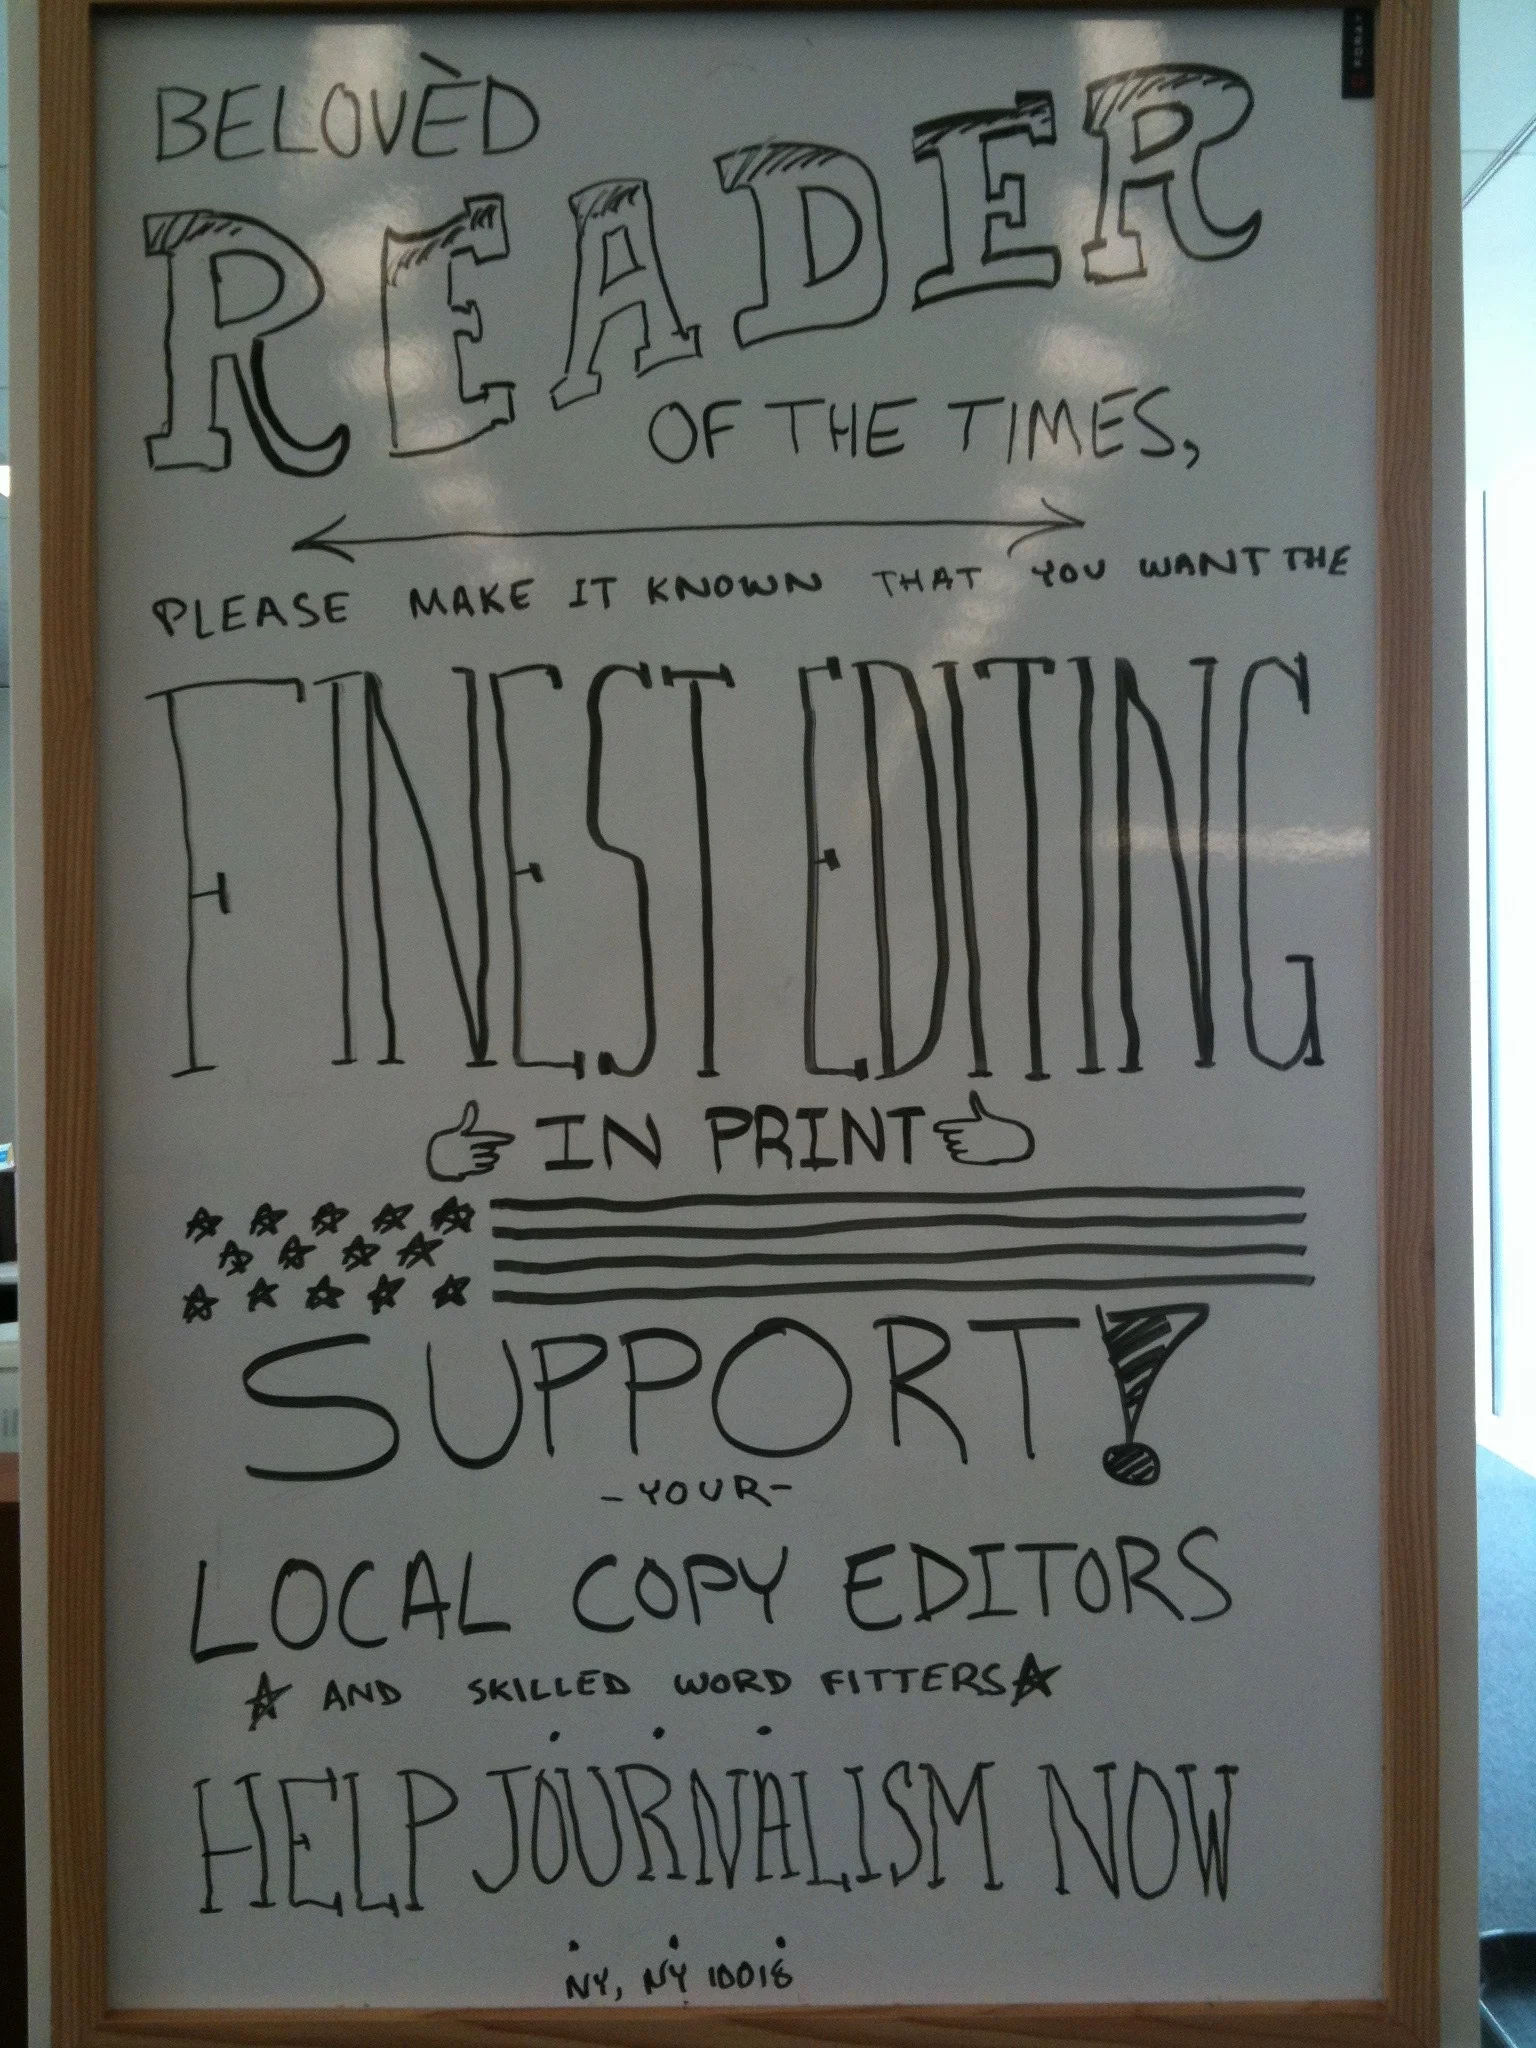 BELOVÈD
READER
OF THE TIMES,
PLEASE MAKE IT KNOWN THAT YOU WANT THE
FINEST EDITING
IN PRINT
SUPPORT!
-YOUR-
LOCAL COPY EDITORS
AND SKILLED WORD FITTERS
HELP JOURNALISM NOW
NY, NY 10018
FORAY